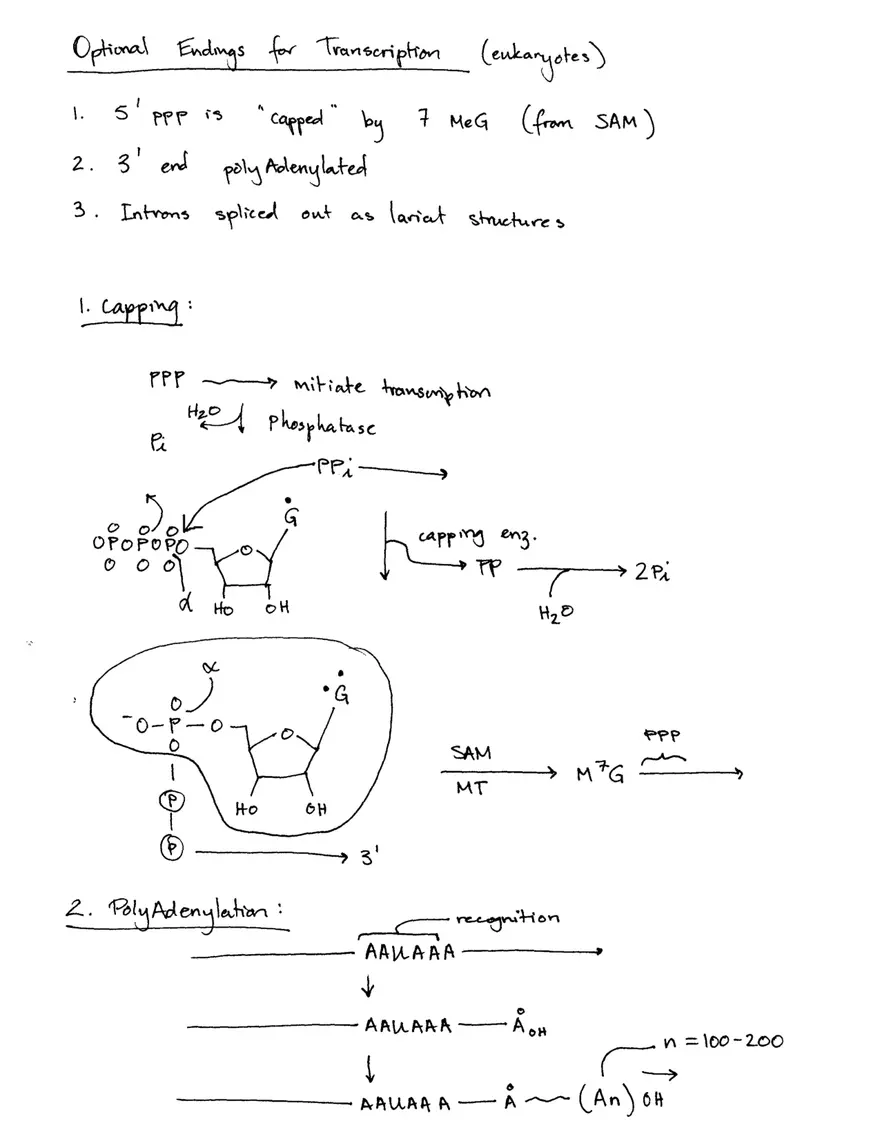 Optional Endings for Transcription (eukaryotes)
1. 5' ppp is "capped" by 7 MeG (from SAM)
2. 3' end polyAdenylated
3. Introns spliced out as lariat structures
1. Capping:
PPP → initiate transcription
H2O
Phosphatase
Pi
PPi
G
O O O
OPOPOPO O
O O O
α HO OH
capping enz.
PP → 2Pi
H2O
α
G
O
-O-P-O O
O
HO OH
P
P → 3'
SAM
MT
M7G
PPP
2. PolyAdenylation:
recognition
AAUAAA
AAUAAA — A OH
n = 100-200
AAUAAA — A (An) OH